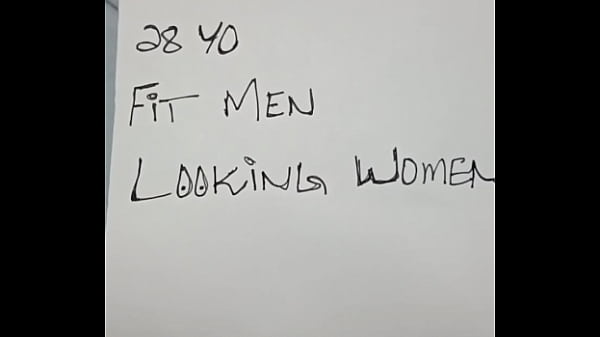 28 YO
FiT MEN
LOOKiNG WOMEN